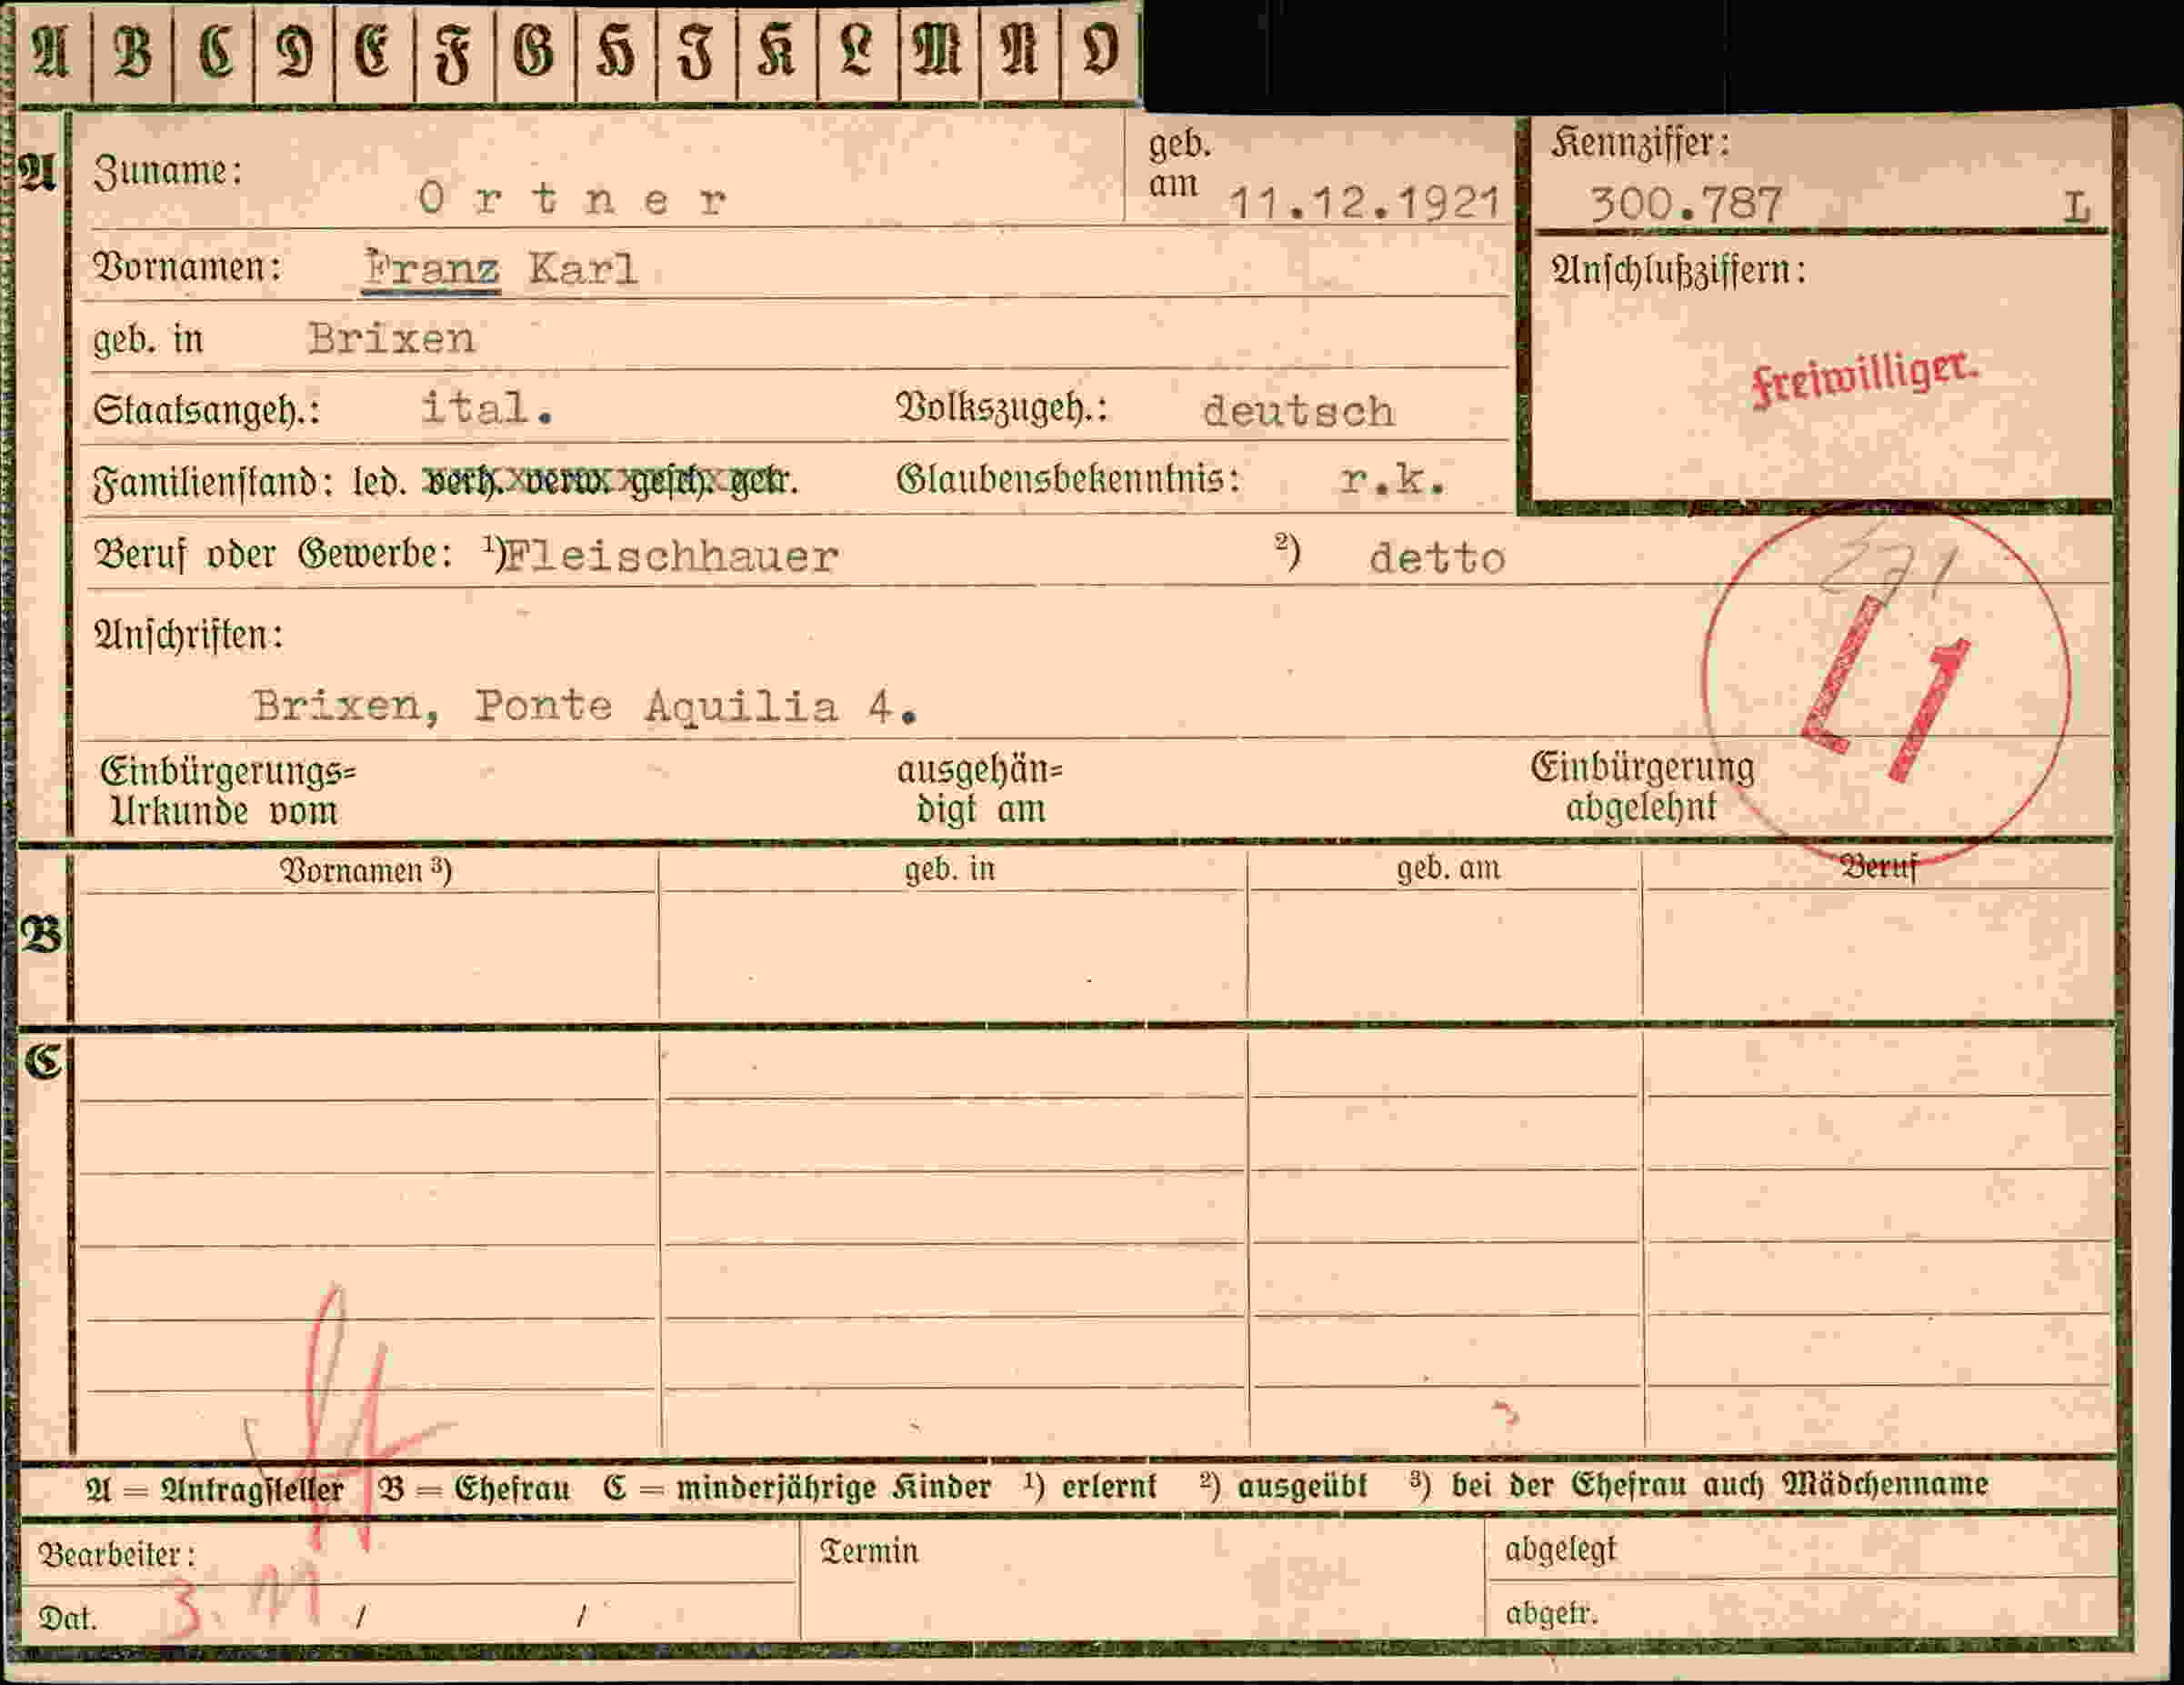 A B C D E F G H J K L M N O
A Zuname: Ortner geb. am 11.12.1921
Kennziffer: 300.787 L
Vornamen: Franz Karl
Anschlußziffern:
geb. in Brixen
freiwilliger.
Staatsangeh.: ital. Volkszugeh.: deutsch
Familienstand: led. verh. verw. gesch. getr. Glaubensbekenntnis: r.k.
Beruf oder Gewerbe: ¹)Fleischhauer ²) detto
271
L1
Anschriften:
Brixen, Ponte Aquilia 4.
Einbürgerungs= ausgehän= Einbürgerung
Urkunde vom digt am abgelehnt
Vornamen ³) geb. in geb. am Beruf
B
C
A = Antragsteller B = Ehefrau C = minderjährige Kinder ¹) erlernt ²) ausgeübt ³) bei der Ehefrau auch Mädchenname
Bearbeiter: Termin abgelegt
Dat. 3. / / abgetr.